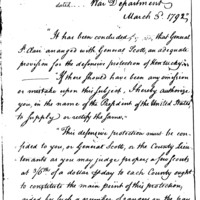 dated War Department
March 5th 1792,
It has been concluded that General
St Clair arranged with General Scott, an adequate
provision for the defensive protection of Kentucky
If there should have been any omission
or mistake upon this subject, I hereby authorize
you, in the name of the President of the United States
to supply or rectify the same.
This defensive protection must be con
fided to you, or General Scott, or the County Lieu
tenants as you may judge proper, a few scouts
at of a dollar P day to each County ought
to constitute the main point of this protection,
aided by such a number of rangers on the